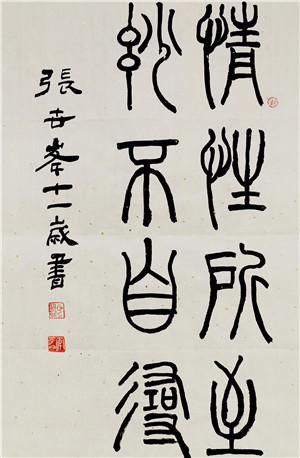 情性所至
玅不自尋
張世峯十一歲書